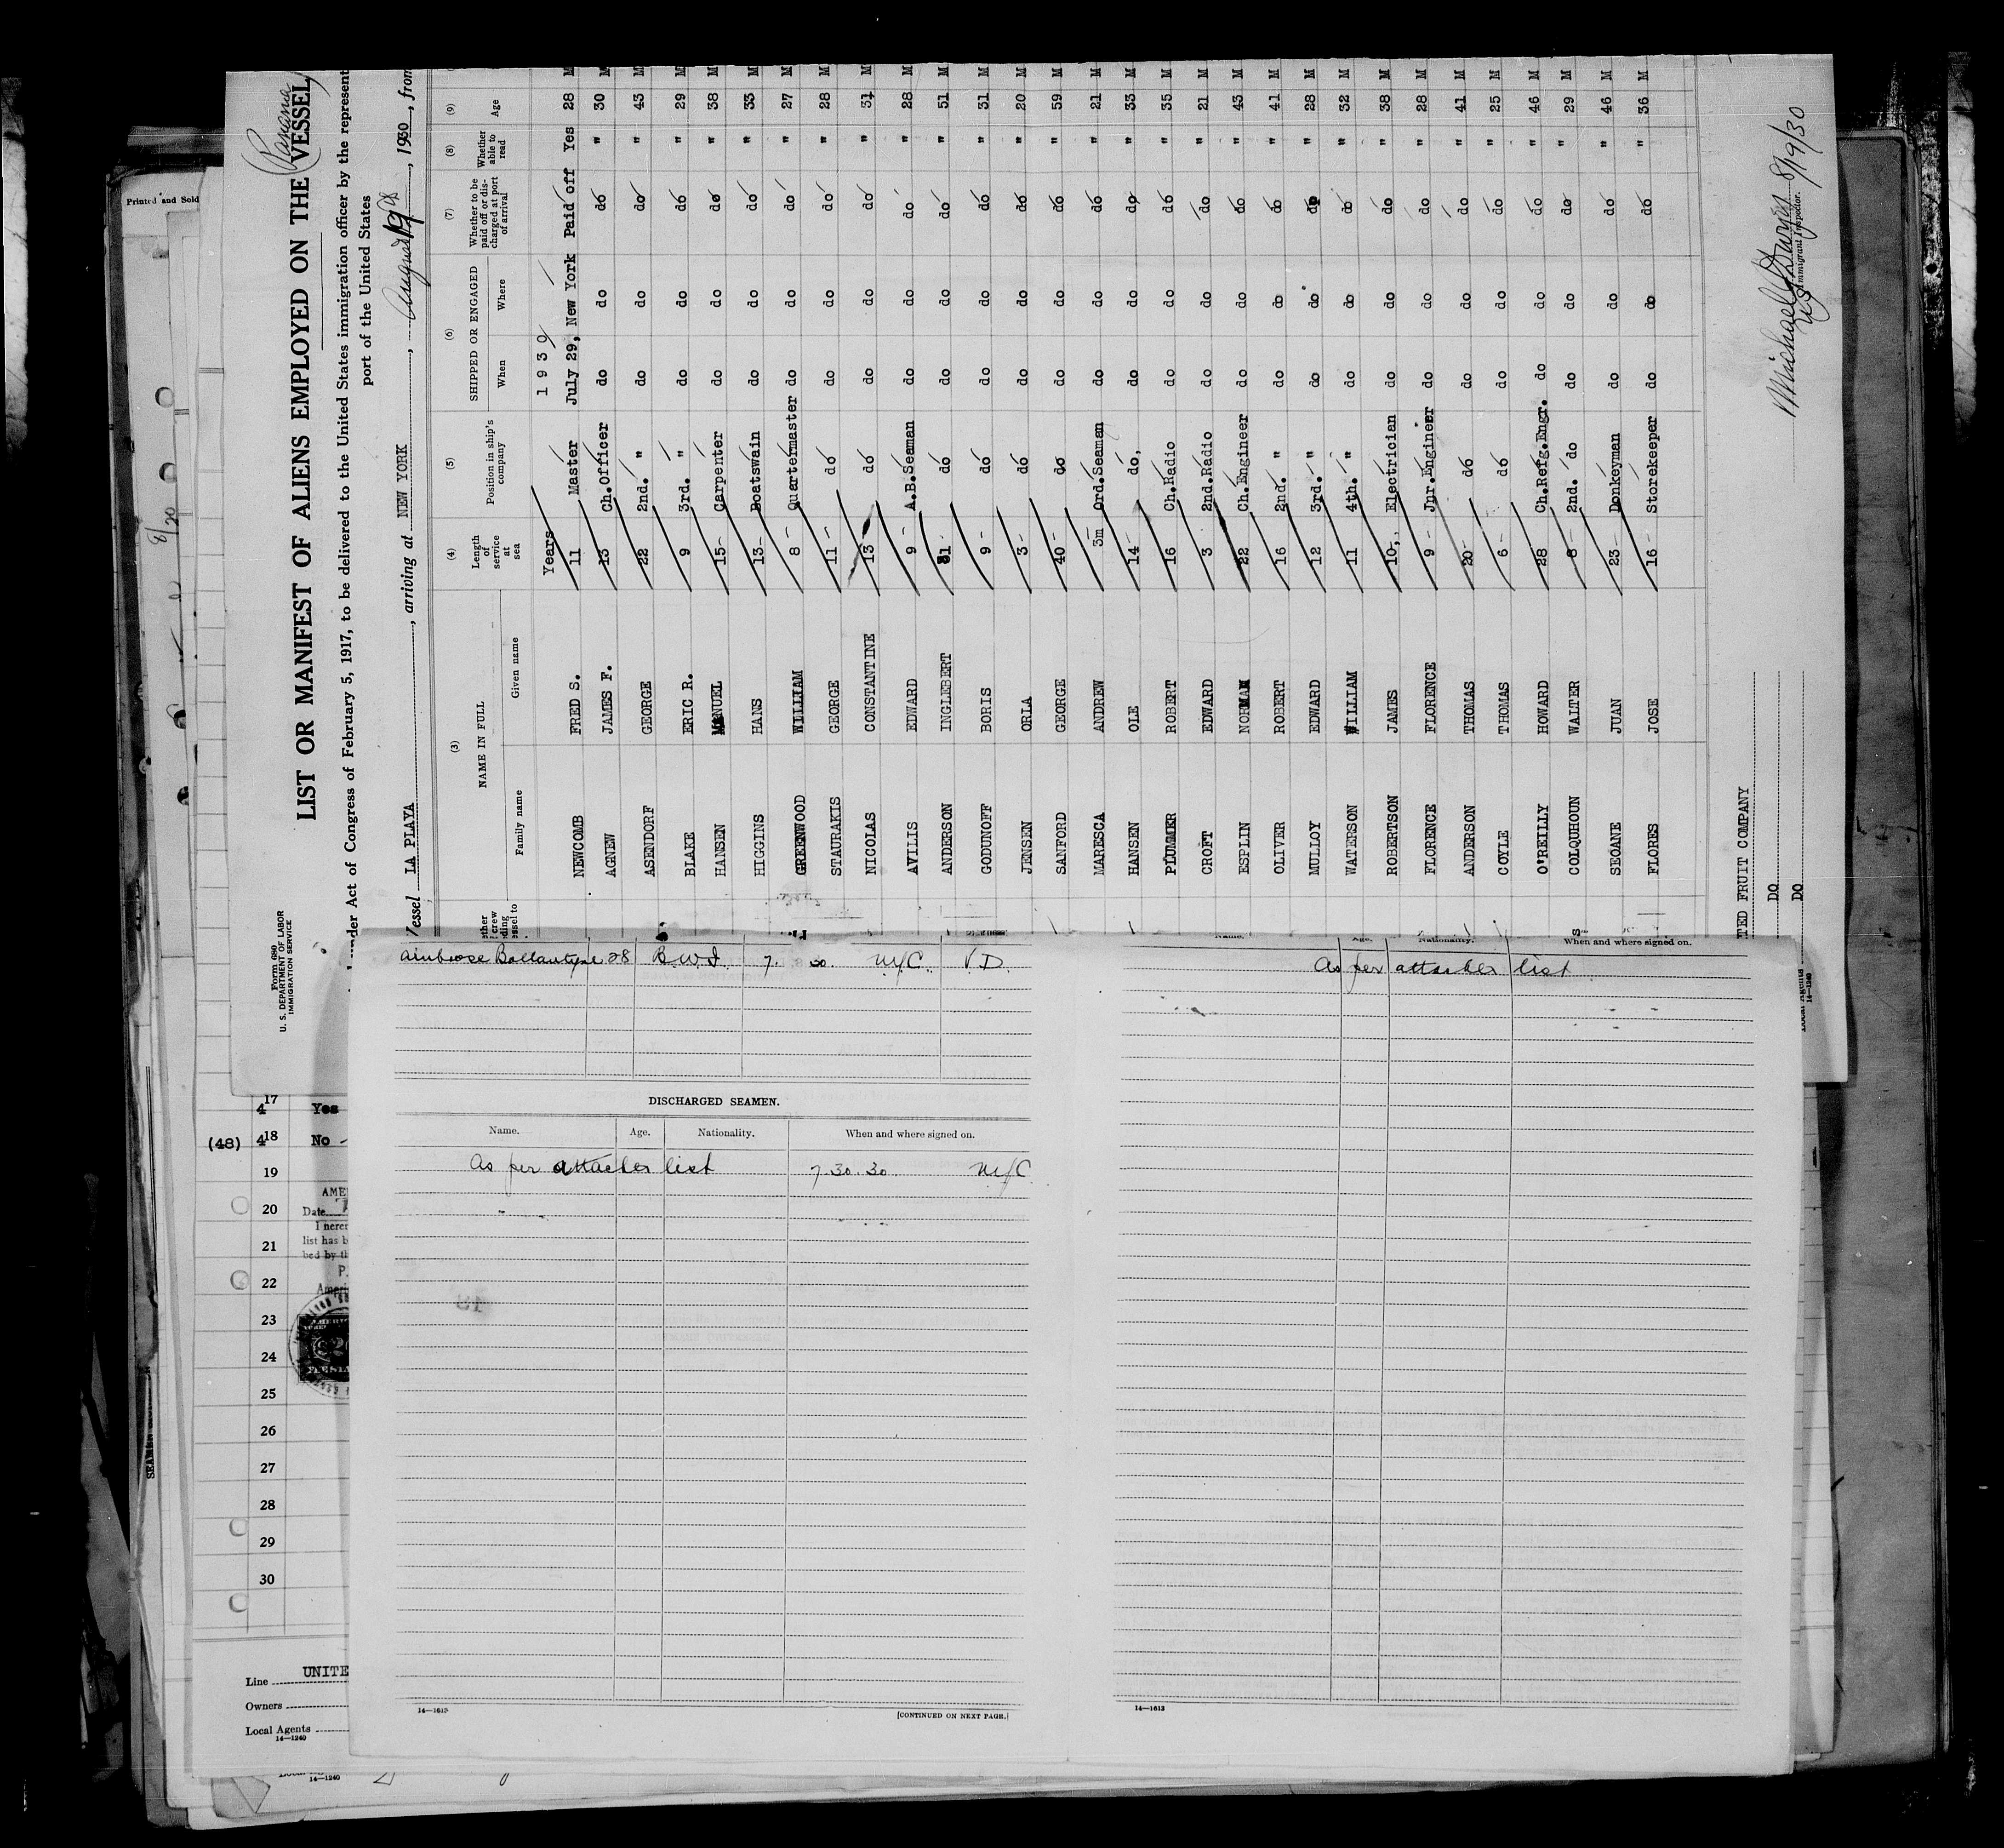 Form 680
U. S. DEPARTMENT OF LABOR
IMMIGRATION SERVICE
(Panama)
LIST OR MANIFEST OF ALIENS EMPLOYED ON THE VESSEL
nder Act of Congress of February 5, 1917, to be delivered to the United States immigration officer by the represent
port of the United States
Vessel LA PLAYA, arriving at NEW YORK, August 19th, 1930, from
(3) (4) (5) (6) (7) (8) (9)
NAME IN FULL
Family name Given name
Length of service at sea
Position in ship's company
SHIPPED OR ENGAGED
When Where
Whether to be paid off or discharged at port of arrival
Whether able to read
Age
Years 1930
NEWCOMB FRED S. 11 Master July 29, New York Paid off Yes 28 M
AGNEW JAMES F. 13 Ch.Officer do do do " 30 M
ASENDORF GEORGE 22 2nd. " do do do " 43 M
BLAKE ERIC R. 9 3rd. " do do do " 29 M
HANSEN MANUEL 15 Carpenter do do do " 38 M
HIGGINS HANS 13 Boatswain do do do " 33 M
GREENWOOD WILLIAM 8 Quartermaster do do do " 27 M
STAURAKIS GEORGE 11 do do do do " 28 M
NICOLAS CONSTANTINE 13 do do do do " 31 M
AVILIS EDWARD 9 A.B.Seaman do do do " 28 M
ANDERSON INGLEBERT 31 do do do do " 51 M
GODUNOFF BORIS 9 do do do do " 31 M
JENSEN ORLA 3 do do do do " 20 M
SANFORD GEORGE 40 do do do do " 59 M
MARESCA ANDREW 3m Ord.Seaman do do do " 21 M
HANSEN OLE 14 do, do do do " 33 M
PLUMMER ROBERT 16 Ch.Radio do do do " 35 M
CROFT EDWARD 3 2nd.Radio do do do " 21 M
ESPLIN NORMAN 22 Ch.Engineer do do do " 43 M
OLIVER ROBERT 16 2nd. " do do do " 41 M
MULLOY EDWARD 12 3rd. " do do do " 28 M
WATERSON WILLIAM 11 4th. " do do do " 32 M
ROBERTSON JAMES 10 Electrician do do do " 38 M
FLORENCE FLORENCE 9 Jnr.Engineer do do do " 28 M
ANDERSON THOMAS 20 do do do do " 41 M
COYLE THOMAS 6 do do do do " 25 M
O'REILLY HOWARD 28 Ch.Refg.Engr. do do do " 46 M
COLQUHOUN WALTER 8 2nd. do do do do " 29 M
SEOANE JUAN 23 Donkeyman do do do " 46 M
FLORES JOSE 16 Storekeeper do do do " 36 M
TED FRUIT COMPANY
DO
DO
Local Agents
14—1240
8/19/30
Immigrant Inspector.
Printed and Sold
8/20
Ambrose Ballantyne 28 B.W.I. 7. 30. NYC. V.D.
DISCHARGED SEAMEN.
Name. Age. Nationality. When and where signed on.
As per attached list 7.30.30 NYC
14—1613
[CONTINUED ON NEXT PAGE.]
Name. Age. Nationality. When and where signed on.
As per attached list
14—1613
17 Yes
(48) 18 No
19
20
21
22
23
24
25
26
27
28
29
30
AME
Date
list has b
bed by th
Line UNITE
Owners
Local Agents
14—1240
14—1240